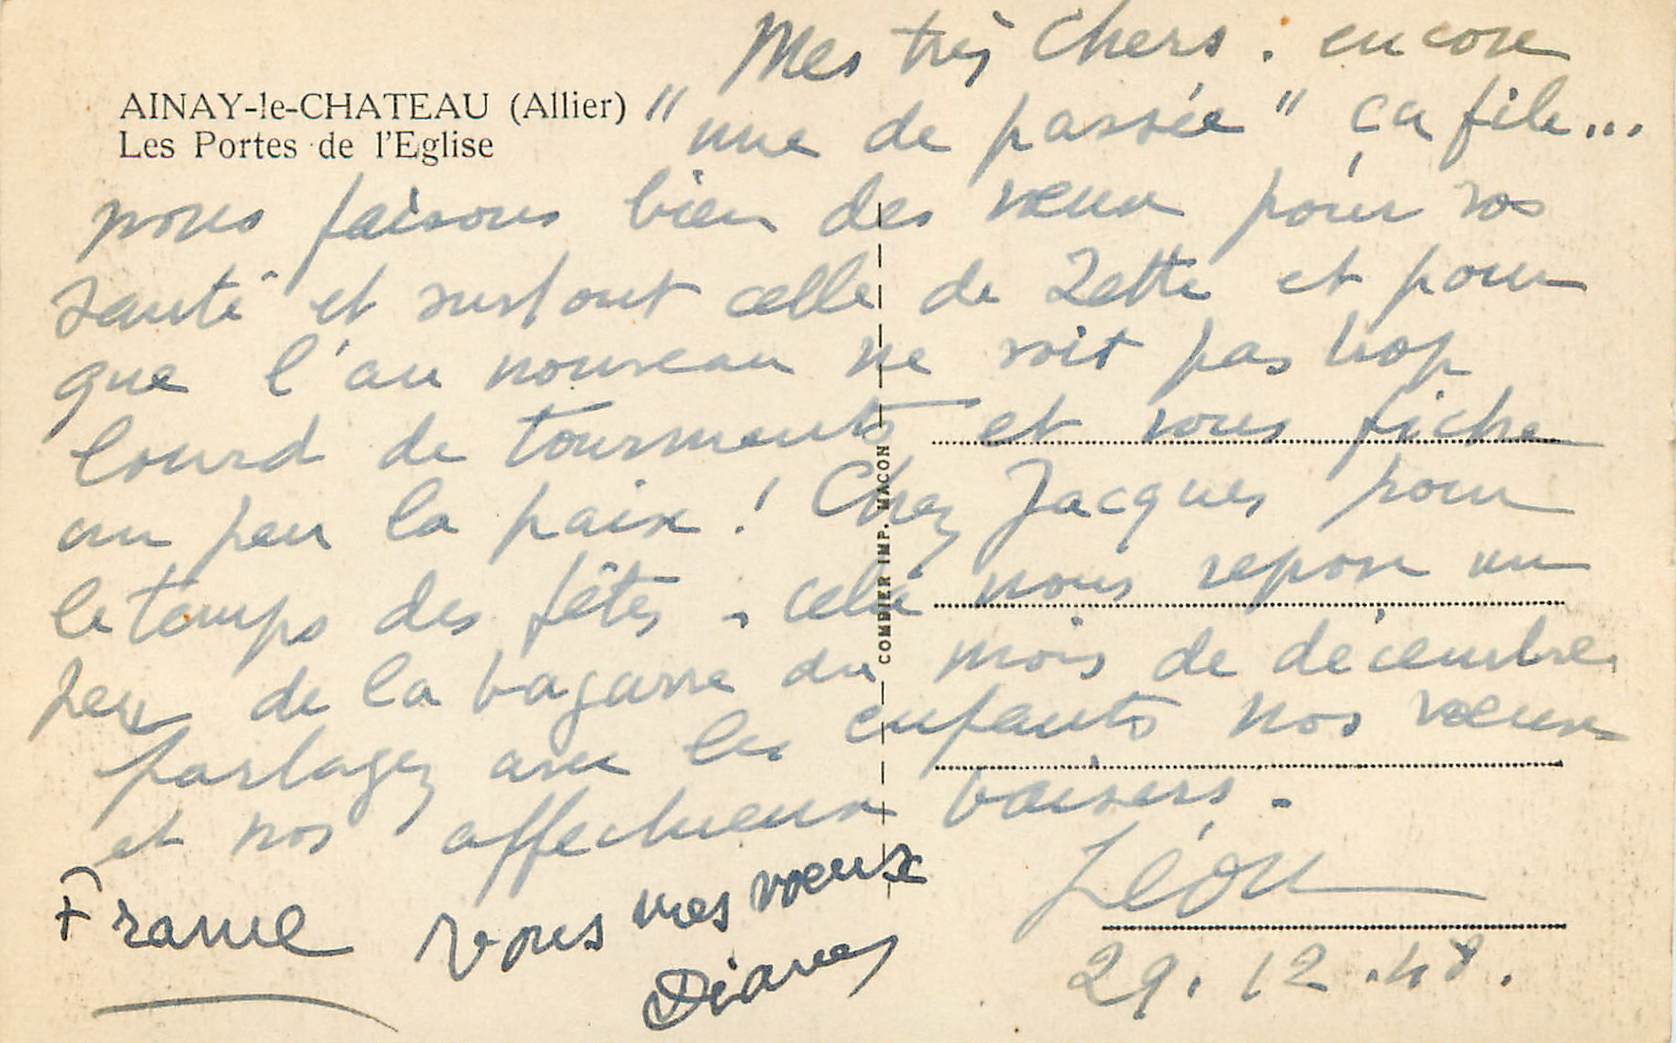 AINAY-le-CHATEAU (Allier)
Les Portes de l'Eglise
Mes très Chers. encore
"une de passée" ça file...
nous faisons bien des vœux pour vos
santé et surtout celle de Zette et pour
que l'an nouveau ne soit pas trop
lourd de tourments et vous fiche
un peu la paix! Chez Jacques pour
le temps des fêtes. cela nous repose un
peu de la bagarre du mois de décembre
partagez avec les enfants nos vœux
et nos affectueux baisers.
Léon
29.12.48.
France
vous mes vœux
Diane
COMBIER IMP. MACON